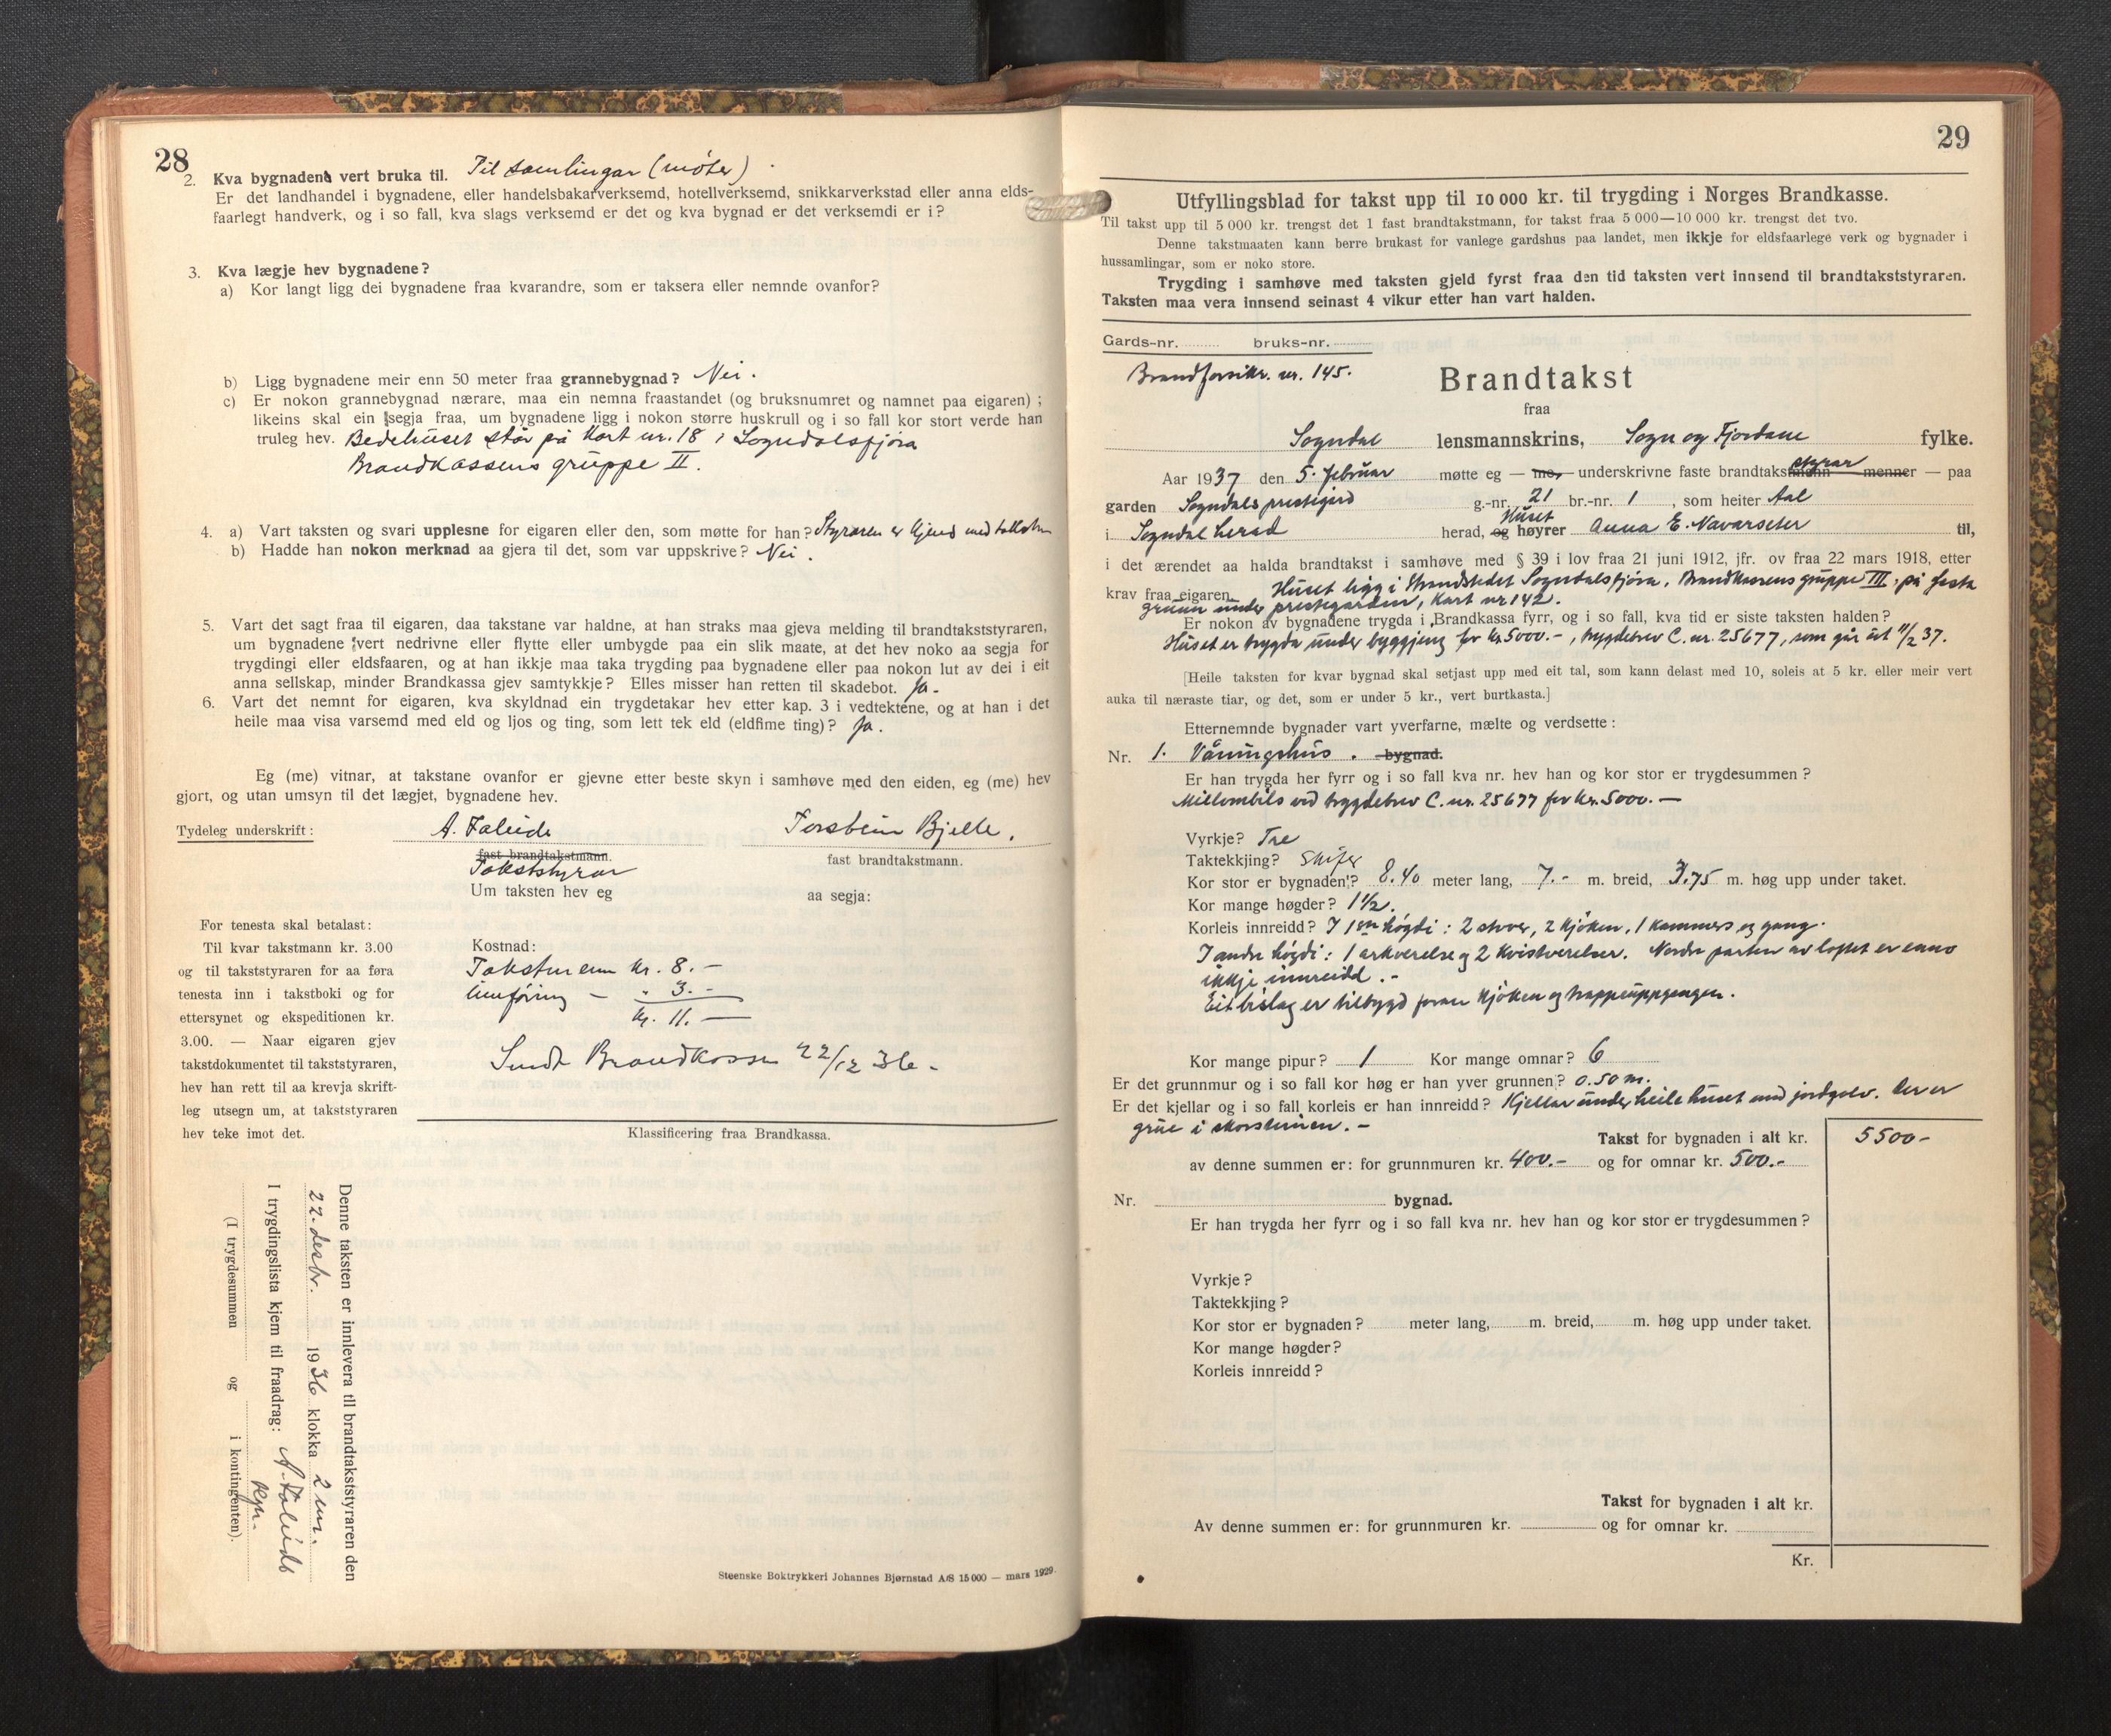 28
2. Kva bygnadene vert bruka til. Til samlingar (møter)
Er det landhandel i bygnadene, eller handelsbakarverksemd, hotellverksemd, snikkarverkstad eller anna elds-
faarlegt handverk, og i so fall, kva slags verksemd er det og kva bygnad er det verksemdi er i?
3. Kva lægje hev bygnadene?
a) Kor langt ligg dei bygnadene fraa kvarandre, som er taksera eller nemnde ovanfor?
b) Ligg bygnadene meir enn 50 meter fraa grannebygnad? Nei.
c) Er nokon grannebygnad nærare, maa ein nemna fraastandet (og bruksnumret og namnet paa eigaren) ;
likeins skal ein segja fraa, um bygnadene ligg i nokon større huskrull og i so fall kor stort verde han
truleg hev. Bedehuset står på Kart nr. 18 i Sogndalsfjøra
Brandkassens gruppe II.
4. a) Vart taksten og svari upplesne for eigaren eller den, som møtte for han? Styraren er kjend med taksten
b) Hadde han nokon merknad aa gjera til det, som var uppskrive? Nei.
5. Vart det sagt fraa til eigaren, daa takstane var haldne, at han straks maa gjeva melding til brandtakststyraren,
um bygnadene vert nedrivne eller flytte eller umbygde paa ein slik maate, at det hev noko aa segja for
trygdingi eller eldsfaaren, og at han ikkje maa taka trygding paa bygnadene eller paa nokon lut av dei i eit
anna sellskap, minder Brandkassa gjev samtykkje? Elles misser han retten til skadebot. Ja.
6. Vart det nemnt for eigaren, kva skyldnad ein trygdetakar hev etter kap. 3 i vedtektene, og at han i det
heile maa visa varsemd med eld og ljos og ting, som lett tek eld (eldfime ting)? Ja.
Eg (me) vitnar, at takstane ovanfor er gjevne etter beste skyn i samhøve med den eiden, eg (me) hev
gjort, og utan umsyn til det lægjet, bygnadene hev.
Tydeleg underskrift: A. Faleide Torstein Bjelle.
fast brandtakstmann. fast brandtakstmann.
Takststyrar
Um taksten hev eg aa segja:
For tenesta skal betalast:
Til kvar takstmann kr. 3.00
og til takststyraren for aa føra
tenesta inn i takstboki og for
ettersynet og ekspeditionen kr.
3.00. — Naar eigaren gjev
takstdokumentet til takststyraren,
hev han rett til aa krevja skrift-
leg utsegn um, at takststyraren
hev teke imot det.
Kostnad:
Takstmenn kr. 8.-
Innføring - " 3.-
Kr. 11.—
Sendt Brandkassen 22/12 36.
Klassificering fraa Brandkassa.
Denne taksten er innlevera til brandtakststyraren den
22. desbr. 1936 klokka 2 em.
I trygdingslista kjem til fraadrag: A. Faleide
(I trygdesummen og i kontingenten).
Steenske Boktrykkeri Johannes Bjørnstad A/S 15 000 — mars 1929.
29
Utfyllingsblad for takst upp til 10 000 kr. til trygding i Norges Brandkasse.
Til takst upp til 5 000 kr. trengst det 1 fast brandtakstmann, for takst fraa 5 000—10 000 kr. trengst det tvo.
Denne takstmaaten kann berre brukast for vanlege gardshus paa landet, men ikkje for eldsfaarlege verk og bygnader i
hussamlingar, som er noko store.
Trygding i samhøve med taksten gjeld fyrst fraa den tid taksten vert innsend til brandtakststyraren.
Taksten maa vera innsend seinast 4 vikur etter han vart halden.
Gards-nr. bruks-nr.
Brandforsikr. nr. 145.
Brandtakst
fraa
Sogndal lensmannskrins, Sogn og Fjordane fylke.
Aar 1937 den 5. februar møtte eg — me, — underskrivne faste brandtakstmann styrar menner — paa
garden Sogndals prestegjerd g.-nr. 21 br.-nr. 1, som heiter Aal
i Sogndal herad herad, og Huset høyrer Anna E. Navarseter til,
i det ærendet aa halda brandtakst i samhøve med § 39 i lov fraa 21 juni 1912, jfr. ov fraa 22 mars 1918, etter
krav fraa eigaren. Huset ligg i Strandstedet Sogndalsfjøra, Brandkassens gruppe III, på festa
grunn under prestegarden, Kart nr 142.
Er nokon av bygnadene trygda i Brandkassa fyrr, og i so fall, kva tid er siste taksten halden?
Huset er trygda under byggjing for kr. 5000.-, trygdebrev C. nr. 25677, som går ut 11/2 37.
[Heile taksten for kvar bygnad skal setjast upp med eit tal, som kann delast med 10, soleis at 5 kr. eller meir vert
auka til næraste tiar, og det, som er under 5 kr., vert burtkasta.]
Etternemnde bygnader vart yverfarne, mælte og verdsette :
Nr. 1. Våningshus. bygnad.
Er han trygda her fyrr og i so fall kva nr. hev han og kor stor er trygdesummen ?
Millombils ved trygdebrev C. nr. 25677 for kr. 5000.—
Vyrkje? Tre
Taktekkjing? Skifer
Kor stor er bygnaden? 8.40 meter lang, 7.- m. breid, 3.75 m. høg upp under taket.
Kor mange høgder? 1½.
Korleis innreidd? I 1ste høgdi: 2 stover, 2 kjøken, 1 kammers og gang.
I andre høgdi: 1 arkverelse og 2 kvistverelser. Nordre parten av loftet er enno
ikkje innreidd.-
Eit bislag er tilbygd foran kjøken og trappeuppgangen.
Kor mange pipur? 1 Kor mange omnar? 6
Er det grunnmur og i so fall kor høg er han yver grunnen? 0.50 m.
Er det kjellar og i so fall korleis er han innreidd? Kjellar under heile huset med jordgolv. Der er
grue i skorsteinen.-
Takst for bygnaden i alt kr. 5500-
av denne summen er: for grunnmuren kr. 400.- og for omnar kr. 500.-
Nr. bygnad.
Er han trygda her fyrr og i so fall kva nr. hev han og kor stor er trygdesummen ?
Vyrkje ?
Taktekkjing ?
Kor stor er bygnaden ? meter lang, m. breid, m. høg upp under taket.
Kor mange høgder?
Korleis innreidd ?
Takst for bygnaden i alt kr.
Av denne summen er: for grunnmuren kr. og for omnar kr.
Kr.